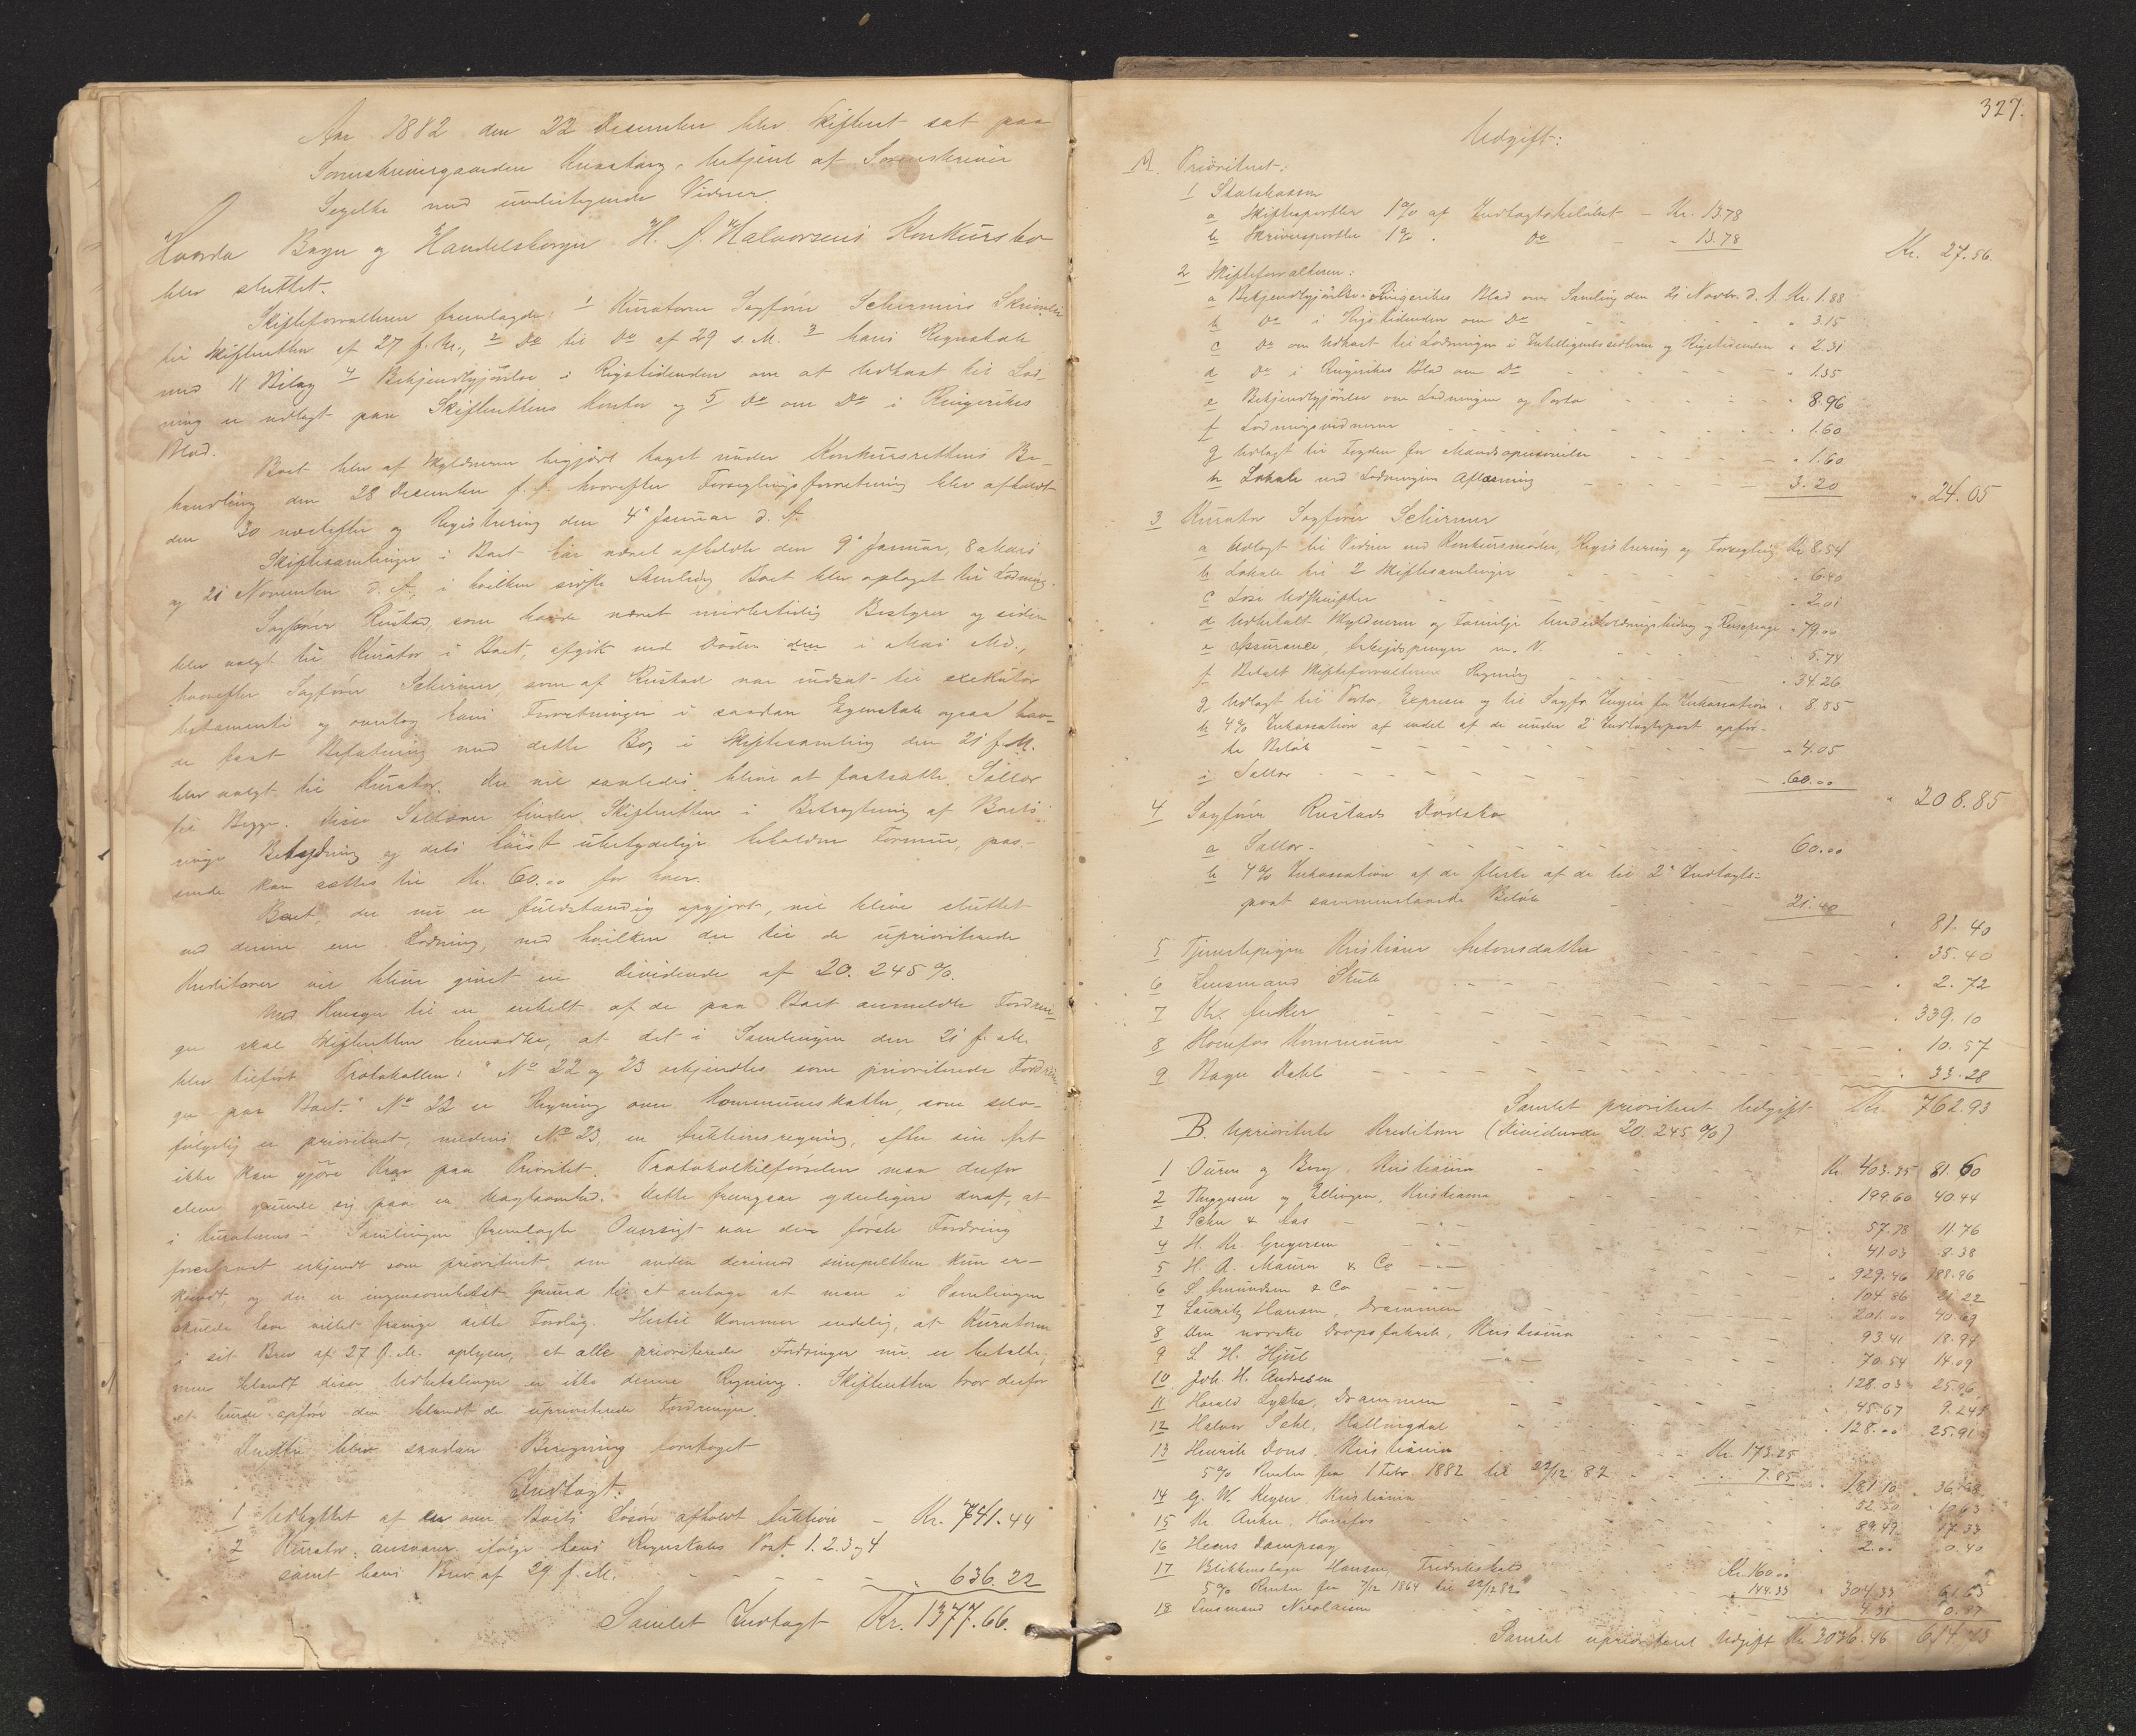 Aar 1882 den 22 Desember blev Skifteret sat paa
Sorenskrivergaarden betjent af Sorenskriver
Segelke med undertegnede Vidner.
Hvorda Bager og Handelsborger H. A. Halvorsens Konkursbo
blev sluttet.
Skifteforvalteren fremlagde: 1 Kuratoren Sagfører Schirmers Skrivelse
til Skifteretten af 27 f. M., 2 Do til Do af 29 s. M. 3 hans Regnskab
med 11 Bilag 4 Bekjendtgjørelse i Rigstidenden om at Udkast til Lod-
ning er udlagt paa Skifterettens Kontor og 5 Do om Do i Ringerikes
Blad.
Boet blev af Skyldneren begjært taget under Konkursrettens Be-
handling den 28 Desember f. A. hvorefter Forseglingsforretning blev afholdt
den 30 næstefter og Registrering den 4 Januar d. A.
Skiftesamlinger i Boet har været afholdte den 9 Januar, 8 Mars
og 21 November d. A., i hvilken sidste Samling Boet blev optaget til Lodning.
Sagfører Rustad, som havde været midlertidig Bestyrer og siden
blev valgt til Kurator i Boet, afgik ved Døden i Mai Md.,
hvorefter Sagfører Schirmer, som af Rustad var indsat til exekutor
testamenti og overtog hans Forretninger i saadan Egenskab ogsaa hav-
de faat Befatning med dette Bo, i Skiftesamling den 21 f. M.
blev valgt til Kurator. Der vil saaledes blive at fastsætte Sallær
til Begge. Disse Sallærer finder Skifteretten i Betragtning af Boets
ringe Betydning og dets høist ubetydelige beholdne Formue, pas-
sende kan sættes til Kr. 60.00 for hver.
Boet, der nu er fuldstændig opgjort, vil blive sluttet
ved denne ene Lodning, ved hvilken der til de uprioriterede
Kreditorer vil blive givet en Dividende af 20.245 %.
Med Hensyn til en enkelt af de paa Boet anmeldte Fordrin-
ger skal Skifteretten bemærke, at det i Samlingen den 21 f. M.
blev tilført Protokollen: "No 22 og 23 erkjendtes som prioriterede Fordrin-
ger paa Boet." No 22 er Regning over Kommuneskatter, som selv-
følgelig er prioriteret, medens No 23, en Auktionsregning, efter sin Art
ikke kan gjøre Krav paa Prioritet. Protokoltilførselen maa derfor
alene grunde sig paa en Uagtsomhed. Dette fremgaar yderligere deraf, at
i Kuratorens i Samlingen fremlagte Oversigt var den første Fordring
foreslaaet erkjendt som prioriteret, den anden derimod simpelthen kun er-
kjendt, og der er ingensomhelst Grund til at antage at man i Samlingen
skulde have villet fravige dette Forslag. Hertil kommer endelig, at Kuratoren
i sit Brev af 27 f. M. oplyser, at alle prioriterede Fordringer nu er betalte,
men blandt disse Udbetalinger er ikke denne Regning. Skifteretten tror derfor
at burde opføre den blandt de uprioriterede Fordringer.
Derefter blev saadan Beregning foretaget
Indtægt:
1 Udbyttet af en over Boets Løsøre afholdt Auktion - Kr. 741.44
2 Kurators ansvarer ifølge hans Regnskabs Post 1. 2. 3 og 4
samt hans Brev af 29 f. M. 636.22
Samlet Indtægt Kr. 1377.66.
327.
Udgift:
A. Prioriteret:
1 Statskassen
a Skiftesportler 1 % af Indtægtsbeløbet - Kr. 13.78
b Skriversportler 1 % Do - 13.78 Kr. 27.56.
2 Skifteforvalteren:
a Bekjendtgjørelse i Ringerikes Blad om Samling den 21 Novbr. d. A. Kr. 1.88
b Do i Rigstidenden om Do 3.15
c Do om Udkast til Lodningen i Intelligenssedlerne og Rigstidenden 2.31
d Do i Ringerikes Blad om Do 1.35
e Bekjendtgjørelse om Lodningen og Porto 8.96
f Lodningsvidnerne 1.60
g Udlagt til Fogden for Mandsopnævnelse 1.60
h Lokale ved Lodningens Aflæsning 3.20 24.05
3 Kurator Sagfører Schirmer
a Udlagt til Vidner ved Konkursmøder, Registrering og Forsegling Kr. 8.54
b Lokale til 2 Skiftesamlinger 6.40
c Løse Udskrifter 2.01
d Udbetalt Skyldneren og Familje Underholdningsbidrag og Reisepenge 79.00
e Assurance, Arbeidspenger m. V. 5.74
f Betalt Skifteforvalterens Regning 34.26
g Udlagt til Porto, Expresse og til Sagfr. for Inkassation 8.85
h 4 % Inkassation af endel af de under 2 Indtægtspost opfør-
te Beløb 4.05
i Sallær 60.00 208.85
4 Sagfører Rustads Dødsbo
a Sallær 60.00
b 4 % Inkassation af de fleste af de til 2 Indtægts-
post sammenlagte Beløb 21.40 81.40
5 Tjenestepigen Kristiane Antonsdatter 35.40
6 Lensmand 2.72
7 Kr. Anker 339.10
8 Hønefos Kommune 10.57
9 Bager Dahl 33.28
Samlet prioriteret Udgift Kr. 762.93
B. Uprioriterte Kreditorer (Dividende 20.245 %)
1 Ouren og Berg, Kristiania Kr. 403.35 81.60
2 Thygesen og Ellingsen, Kristiania 199.60 40.44
3 57.78 11.76
4 H. Kr. Gregersen 41.03 8.38
5 H. A. Maurer & Co 929.46 188.96
6 S. Amundsen & Co 104.86 21.22
7 Lauritz Hansen, Drammen 201.00 40.69
8 Den norske Dropsfabrik, Kristiania 93.41 18.94
9 S. H. Hjul 70.54 14.09
10 Joh. H. Andresen 128.03 25.96
11 Harald Lyche, Drammen 45.67 9.24
12 Halvor Hallingdal 128.00 25.91
13 Henrik Dons, Kristiania Kr. 173.25
5 % Renter fra 1 Febr. 1882 til 22/12 82 7.85 181.10
14 G. W. Keyser, Kristiania 52.50 10.63
15 Kr. Anker, Hønefos 89.49 17.33
16 Hens Dampsag 2.00 0.40
17 Blikkenslager Hansen, Fredrikshald Kr. 160.00
5 % Renter fra 7/12 1864 til 22/12 82 144.33 304.33 61.63
18 Lensmand Nicolaisen
Samlet uprioriteret Udgift Kr. 3036.46